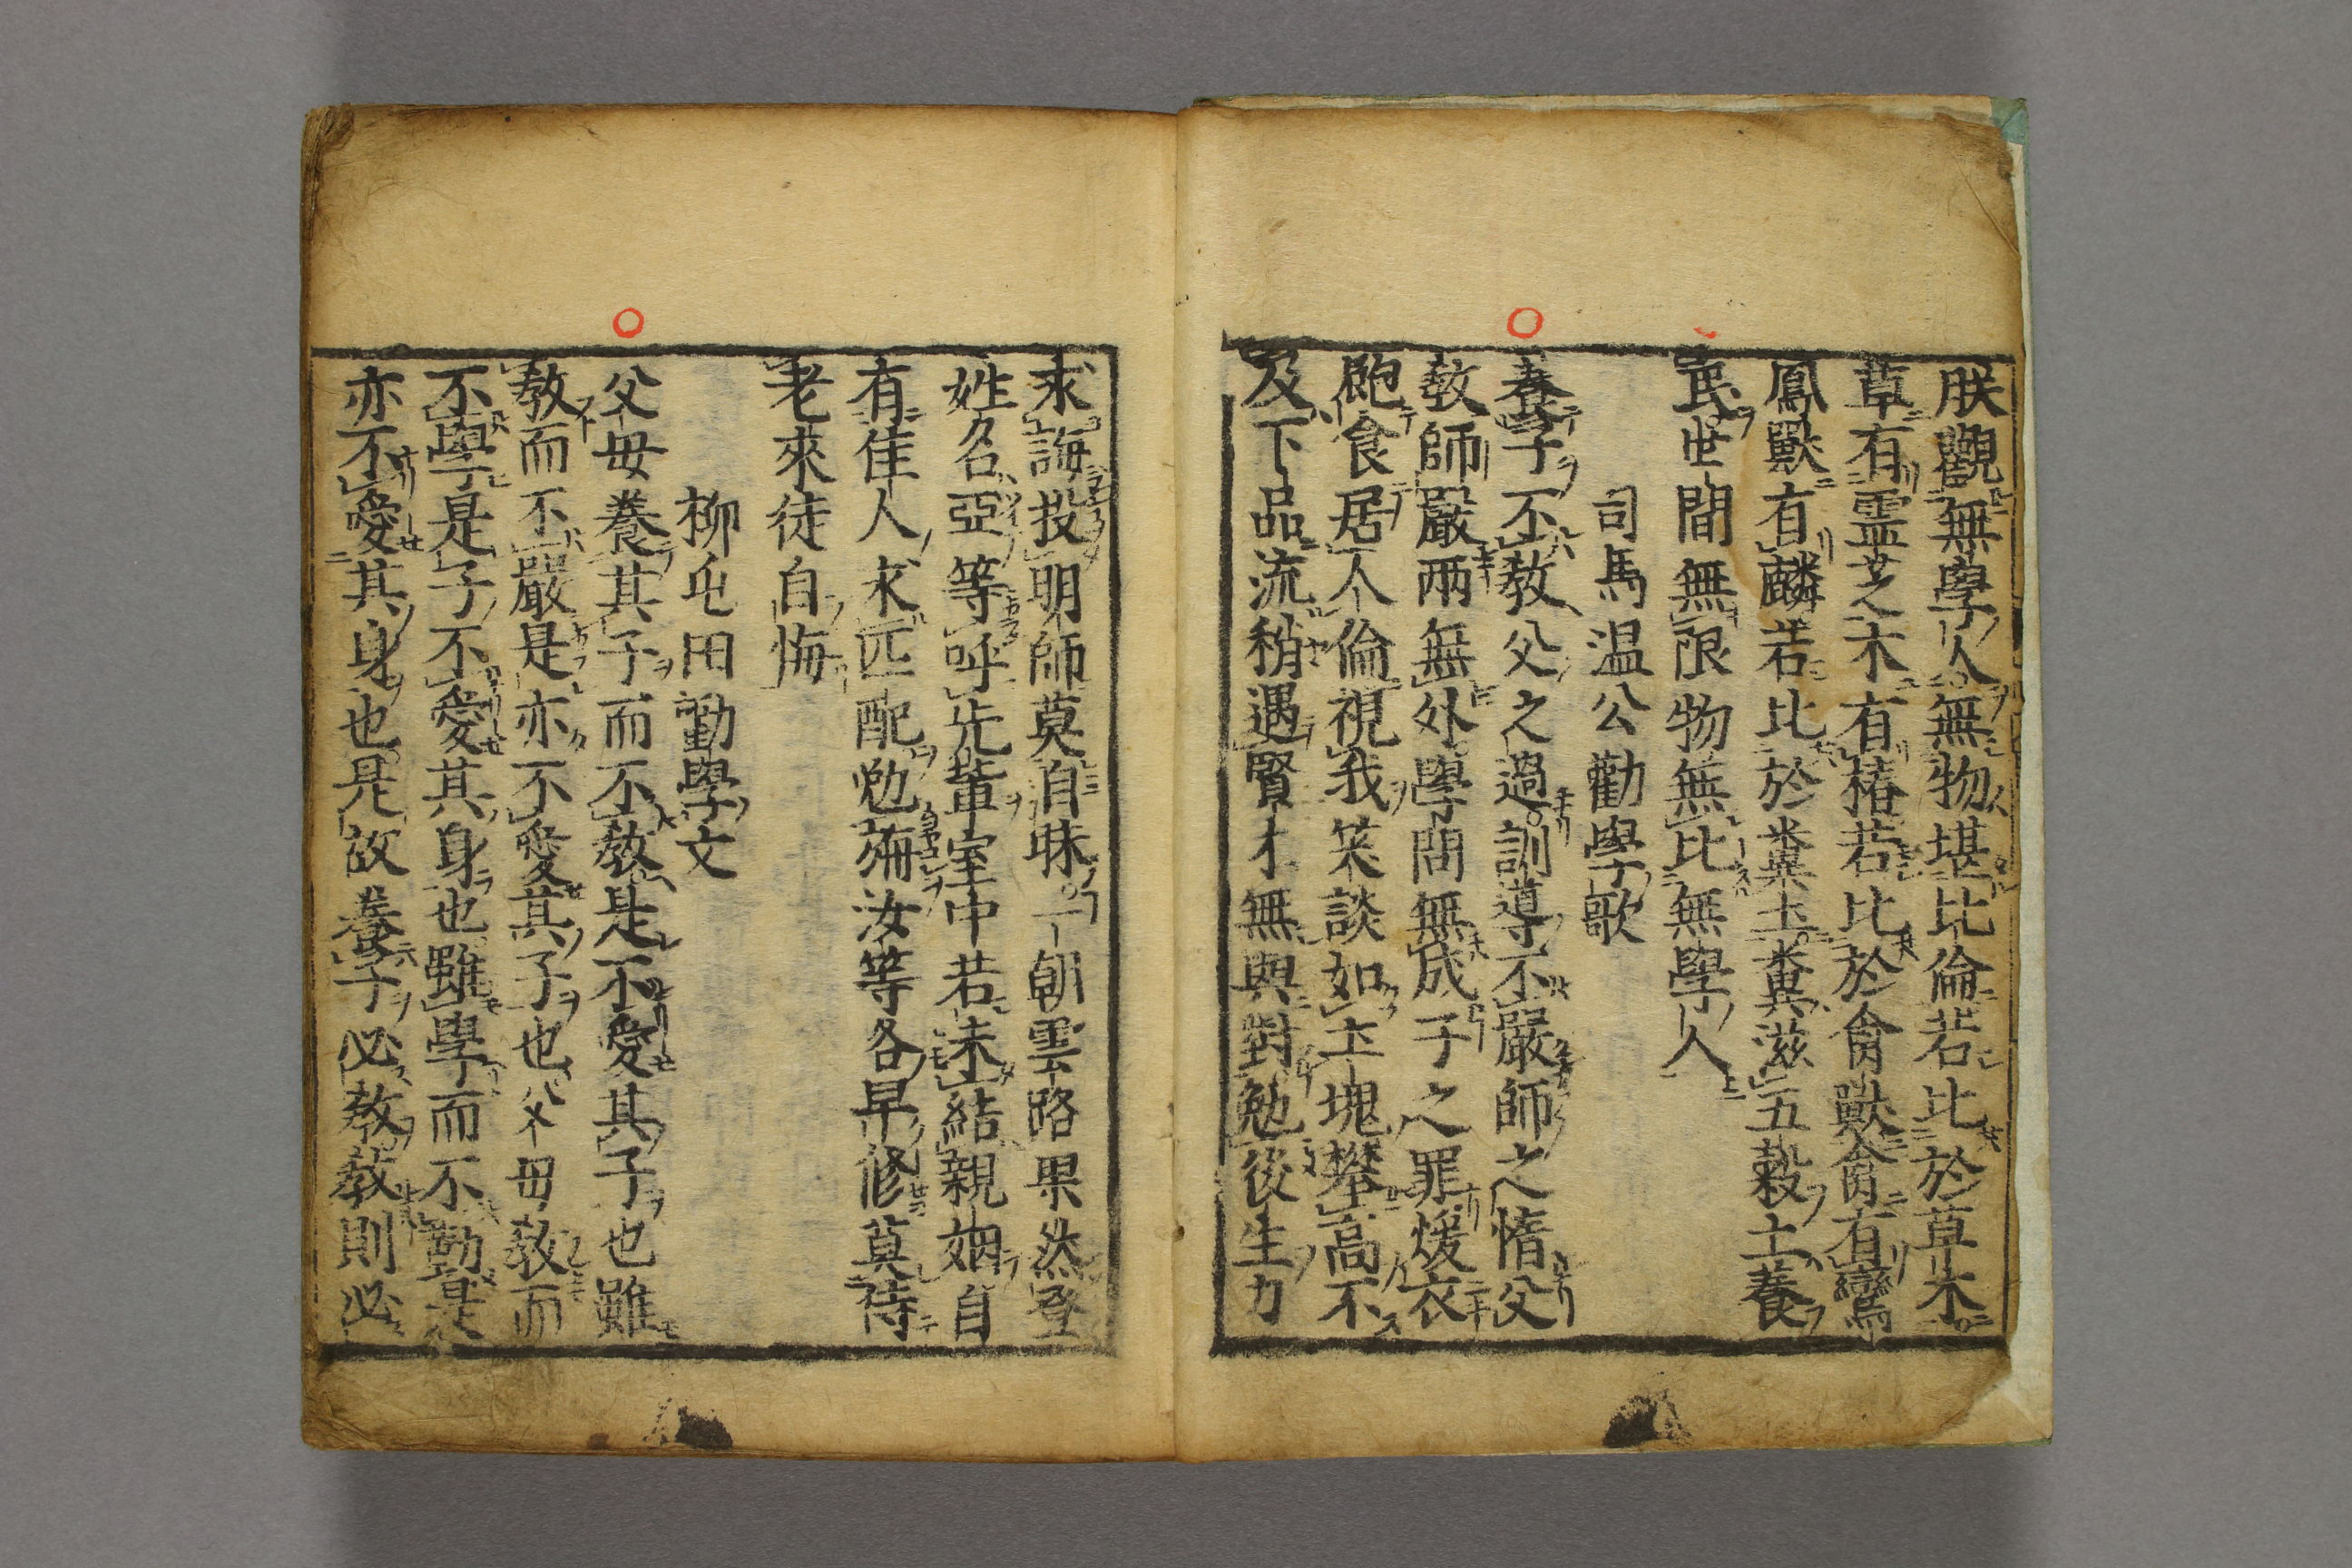 朕觀無學人無物堪比倫若比於草木
草有霊芝木有椿若比於禽獸禽有鸞
鳳獸有麟若比於糞土糞滋五穀土養
民世間無限物無比無學人
司馬温公勸學歌
養子不教父之過訓導不嚴師之惰父
教師嚴兩無外學問無成子之罪煖衣
飽食居人倫視我笑談如土塊攀高不
及下品流稍遇賢才無與對勉後生力
求誨投明師莫自昧一朝雲路果然登
姓名亞等呼先輩室中若未結親姻自
有佳人求匹配勉旃汝等各早修莫待
老來徒自悔
柳屯田勸學文
父母養其子而不教是不愛其子也雖
教而不嚴是亦不愛其子也父母教而
不學是子不愛其身也雖學而不勤是
亦不愛其身也是故養子必教教則必